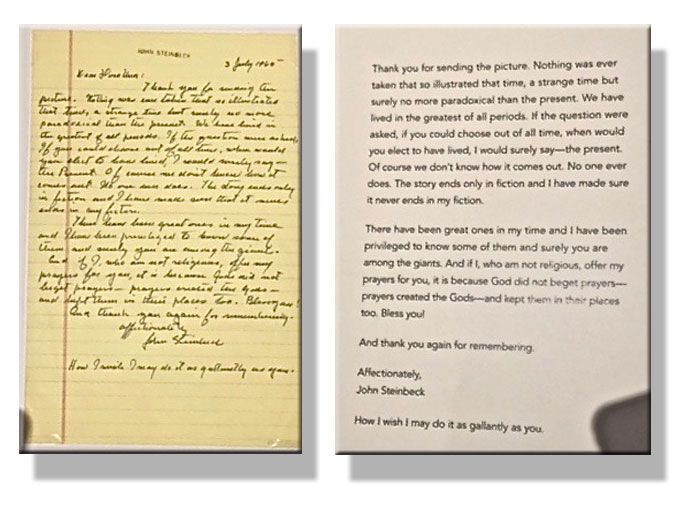 JOHN STEINBECK
3 July 1965
Dear Dorothea:
Thank you for sending the
picture. Nothing was ever taken that so illustrated
that time, a strange time but surely no more
paradoxical than the present. We have lived in
the greatest of all periods. If the question were asked,
If you could choose out of all time, when would
you elect to have lived, I would surely say—
the Present. Of course we don't know how it
comes out. No one ever does. The story ends only
in fiction and I have made sure that it never
ends in my fiction.
There have been great ones in my time
and I have been privileged to know some of
them and surely you are among the giants.
And if I, who am not religious, offer my
prayers for you, it is because God did not
beget prayers — prayers created the Gods—
and kept them in their places too. Bless you!
And thank you again for remembering.
affectionately
John Steinbeck
How I wish I may do it as gallantly as you.
Thank you for sending the picture. Nothing was ever
taken that so illustrated that time, a strange time but
surely no more paradoxical than the present. We have
lived in the greatest of all periods. If the question were
asked, if you could choose out of all time, when would
you elect to have lived, I would surely say—the present.
Of course we don't know how it comes out. No one ever
does. The story ends only in fiction and I have made sure
it never ends in my fiction.
There have been great ones in my time and I have been
privileged to know some of them and surely you are
among the giants. And if I, who am not religious, offer my
prayers for you, it is because God did not beget prayers—
prayers created the Gods—and kept them in their places
too. Bless you!
And thank you again for remembering.
Affectionately,
John Steinbeck
How I wish I may do it as gallantly as you.